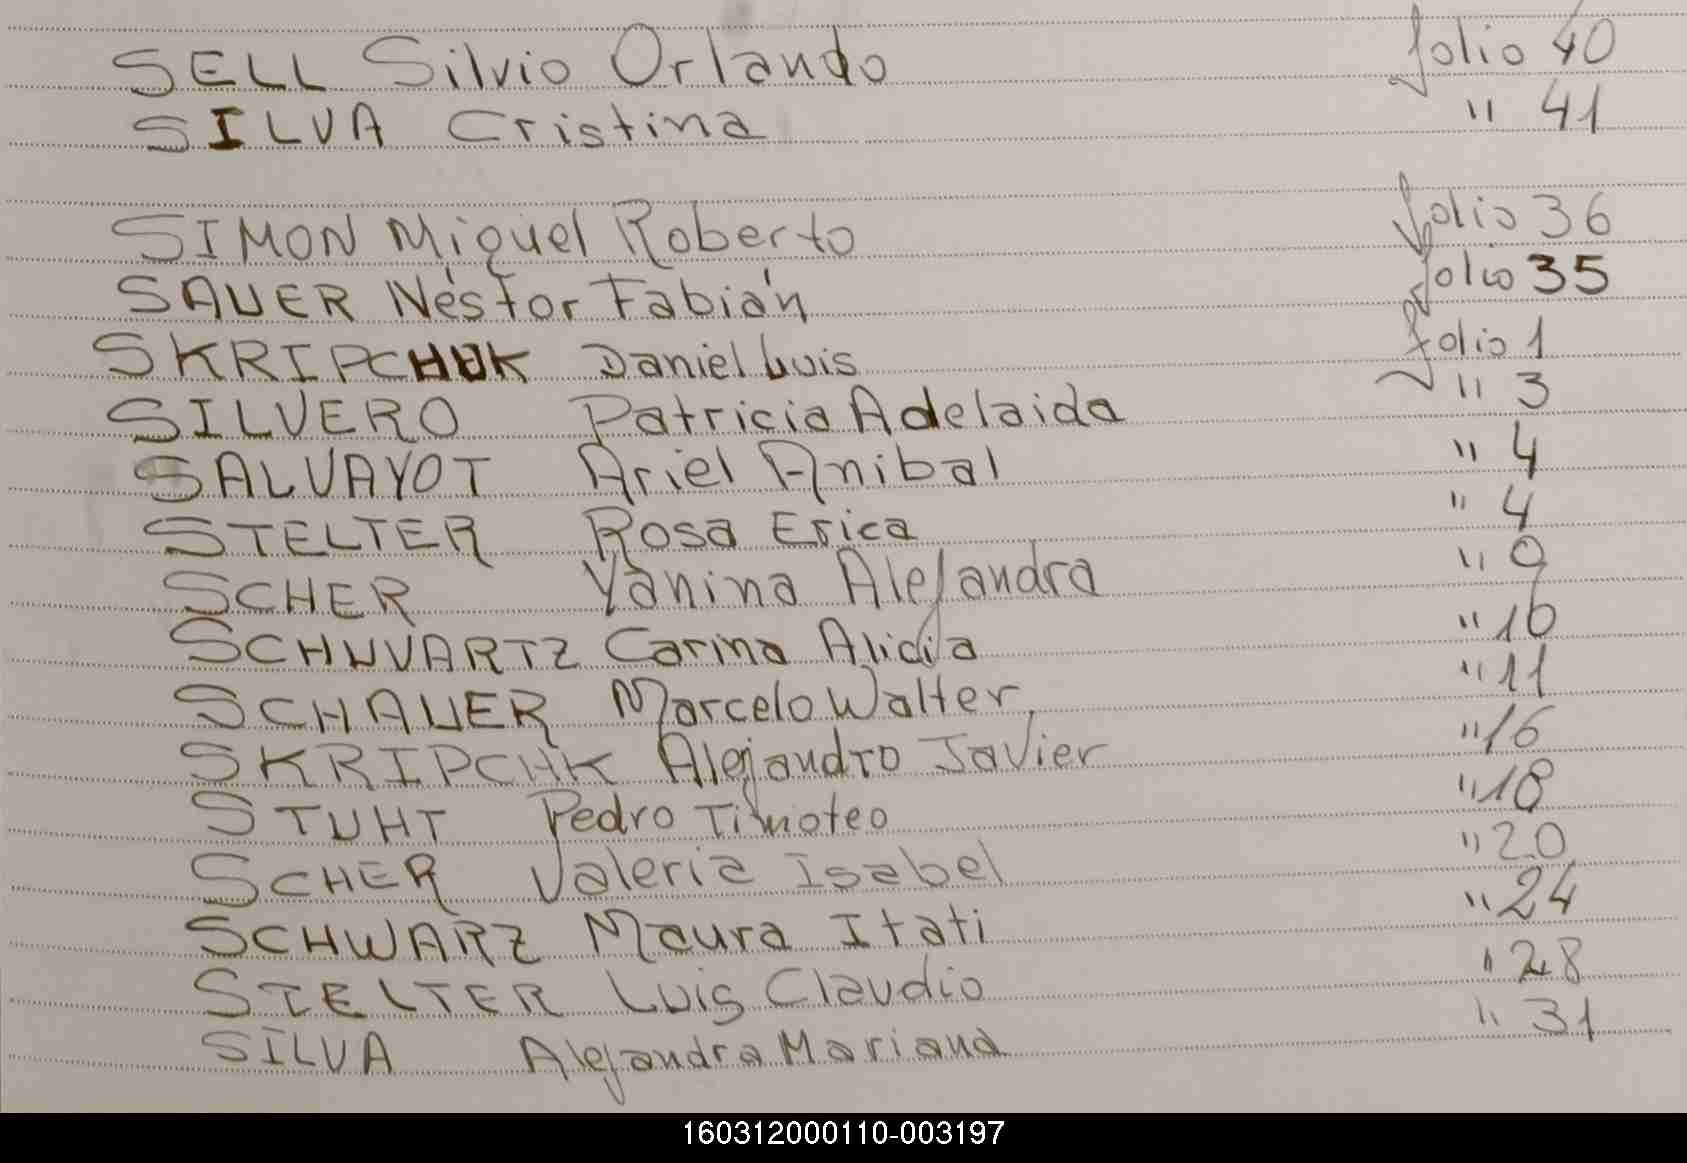 SELL Silvio Orlando folio 40
SILVA Cristina " 41
SIMON Miguel Roberto folio 36
SAUER Néstor Fabián folio 35
SKRIPCHUK Daniel Luis folio 1
SILVERO Patricia Adelaida " 3
SALVAYOT Ariel Anibal " 4
STELTER Rosa Erica " 4
SCHER Yanina Alejandra " 9
SCHWVARTZ Carina Alicia " 10
SCHAUER Marcelo Walter, " 11
SKRIPCHK Alejandro Javier " 16
STUHT Pedro Timoteo " 18
SCHER Valeria Isabel " 20
SCHWARZ Maura Itati " 24
STELTER Luis Claudio " 28
SILVA Alejandra Mariana " 31
160312000110-003197